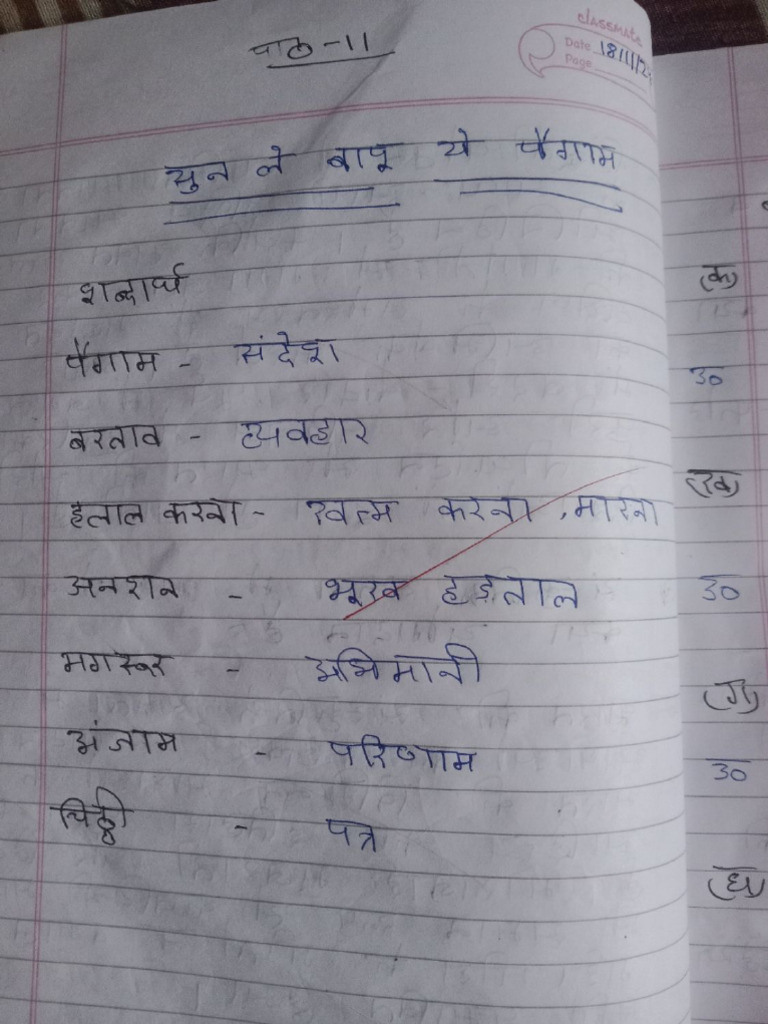 पाठ-11
classmate
Date 18/11/2
Page
सुन ले बापू ये पैगाम
शब्दार्थ
पैगाम - संदेश
बरताव - व्यवहार
हलाल करना - खत्म करना, मारना
अनशन - भूख हड़ताल
मगरूर - अभिमानी
अंजाम - परिणाम
चिठ्ठी - पत्र
(क)
उ०
(ख)
उ०
(ग)
उ०
(घ)